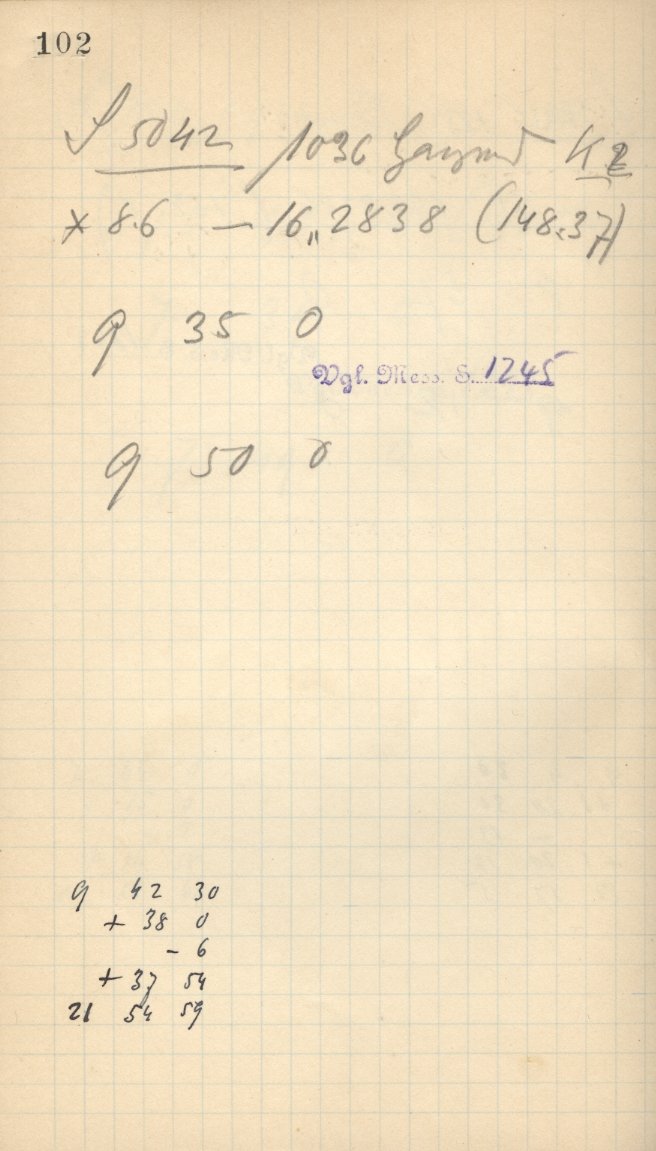 102
S 5042 1036 Ganymed K2
* 8.6 — 16„2838 (148.37)
9 35 0
Vgl. Mess. S. 1245
9 50 0
9 42 30
+ 38 0
- 6
+ 37 54
21 54 59